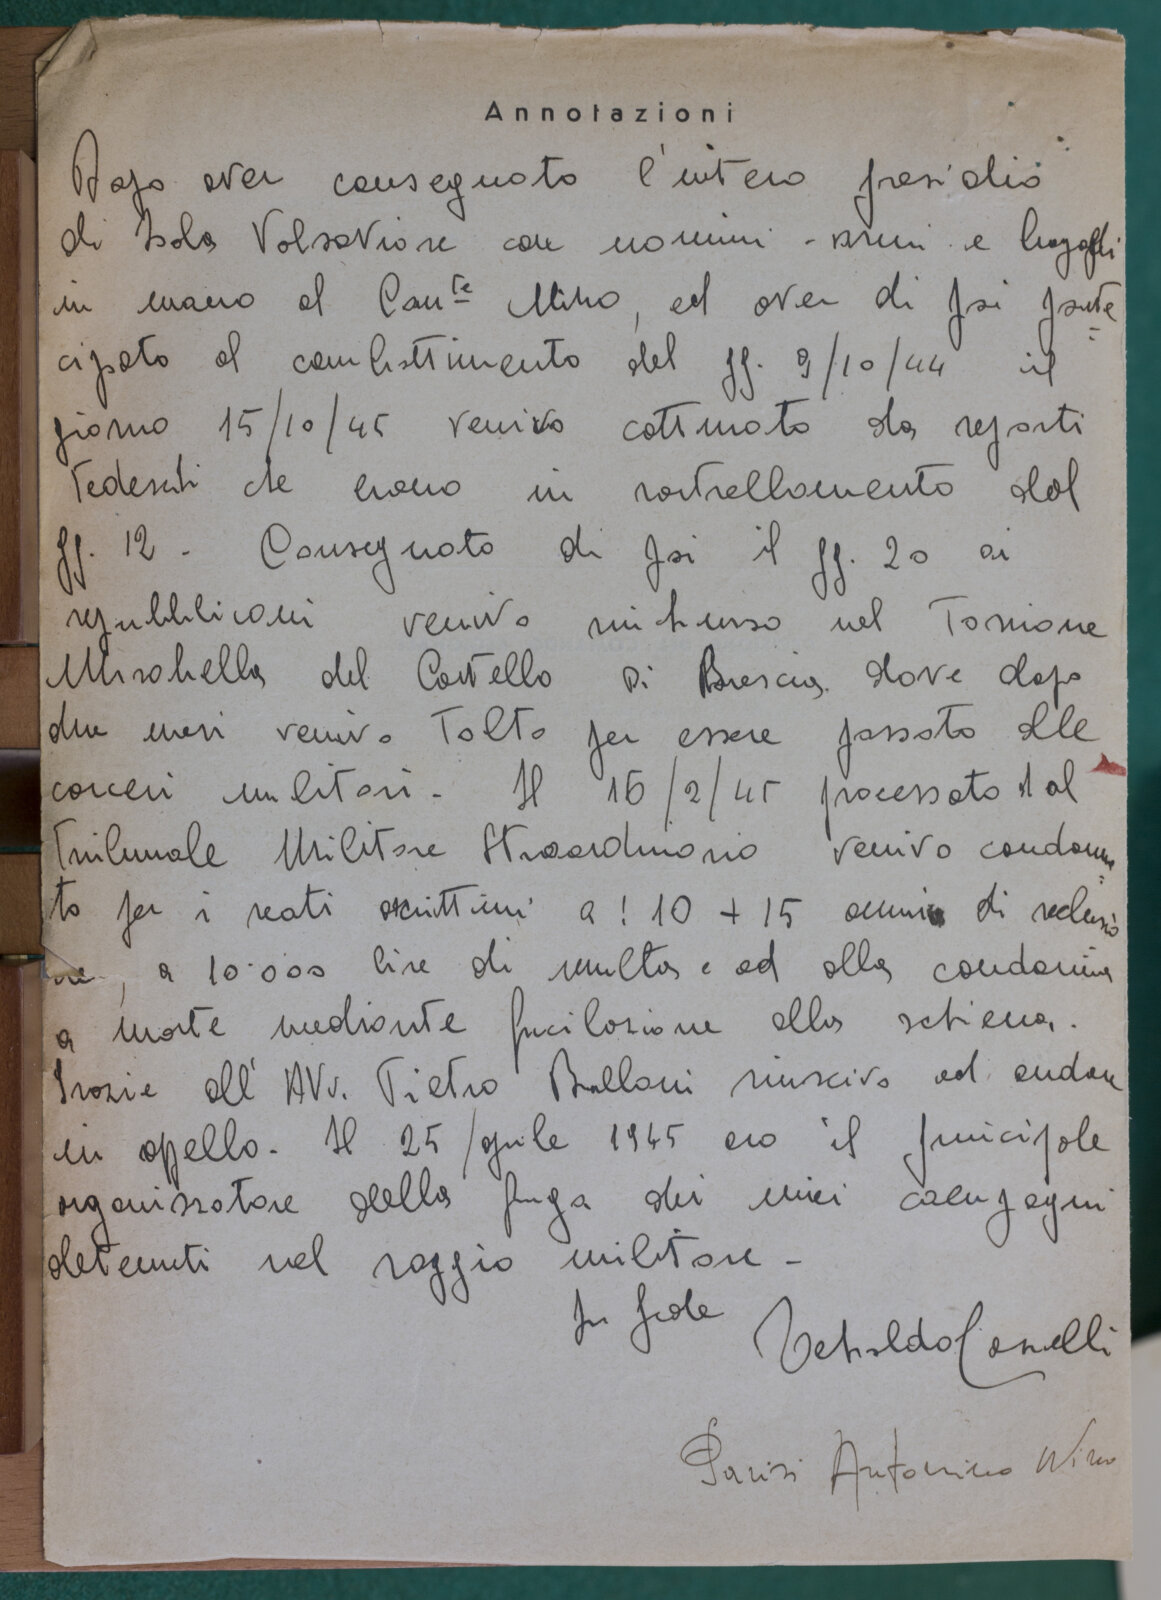 Annotazioni
Dopo aver consegnato l'intero presidio
di Isola Valsaviore con uomini - armi e bagagli
in mano al Com.te Nino, ed aver di poi parte=
cipato al combattimento del gg. 9/10/44 il
giorno 15/10/45 venivo catturato da reparti
Tedeschi che erano in rastrellamento dal
gg. 12 - Consegnato di poi il gg. 20 ai
repubblicani venivo rinchiuso nel Torrione
Mirabella del Castello di Brescia dove dopo
due mesi venivo Tolto per essere passato alle
carceri militari - Il 16/2/45 processato dal
Tribunale Militare Straordinario venivo condanna=
to per i reati ascrittimi a! 10 + 15 anni di reclusio
ne, a 10.000 lire di multa e ad alla condanna
a morte mediante fucilazione alla schiena.
Grazie all' Avv. Pietro Bulloni riuscivo ad andare
in appello - Il 25 Aprile 1945 ero il principale
organizzatore della fuga dei miei compagni
detenuti nel raggio militare -
In fede
Parisi Antonino Nino